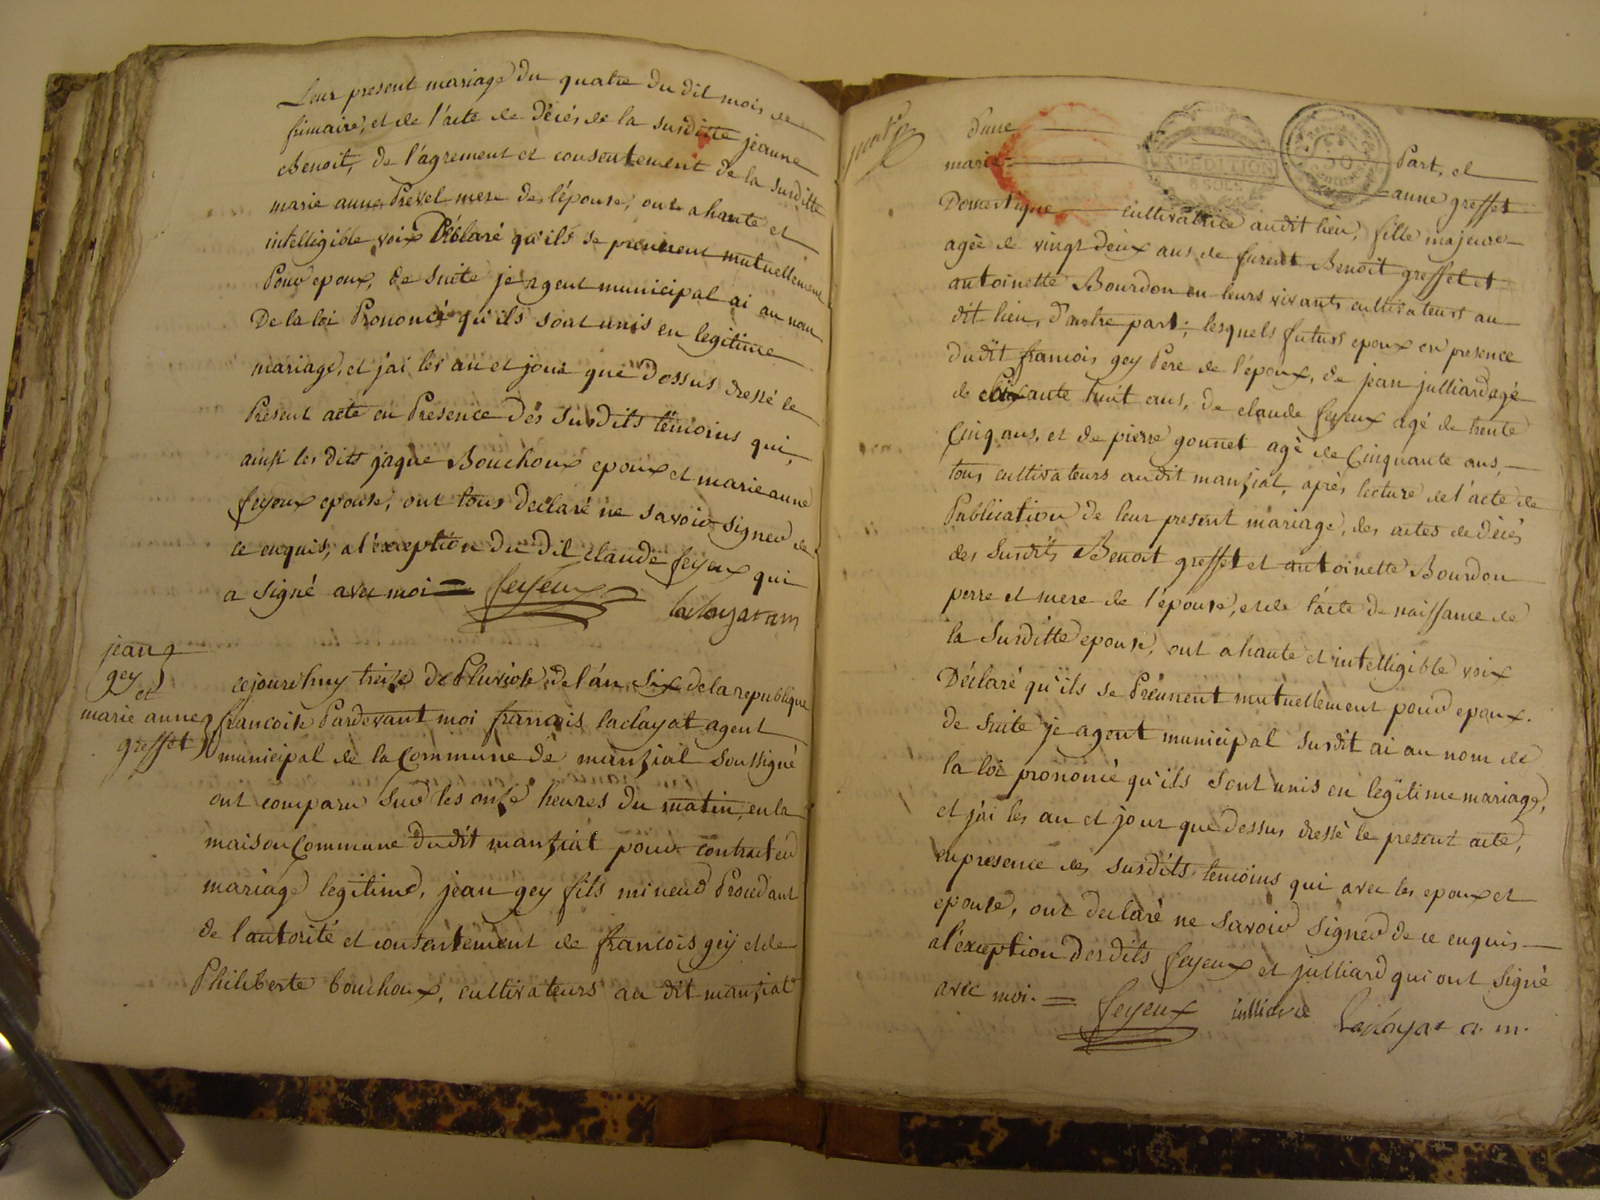 Leur present mariage du quatre du dit mois de
frimaire, et de l'acte de décés de la susditte jeanne
Benoit, de l'agrement et consentement de la susditte
marie anne Prevel mere de l'épouse, ont a haute et
intelligible voix Déclaré qu'ils se prennent mutuellement
Pour epoux, de suite je agent municipal ai au nom
De la loi Prononcé qu'ils sont unis en legitime
mariage, et j'ai les an et jour que Dossus dressé le
Présent acte en Presence des susdits témoins qui,
ainsi les dits jaque Bouchoux epoux et marie anne
feyeux epouse, ont tous declaré ne savoir signer de
ce enquis, a l'éxception du dit claude feyeux qui
a signé avec moi = feyeux
jean
gey
et
marie anne
greffet
cejourdhuy treize de Pluviose de l'an Six de la republique
francoise Pardevant moi francois laclayat agent
municipal de la Commune de manziat soussigné
ont comparu sur les onze heures du matin, en la
maison Commune dudit manziat pour contracter
mariage legitime, jean gey fils mineur Procedant
de l'autorité et consentement de francois gey et de
Philiberte bouchoux, cultivateurs au dit manziat
D'une Part, et
marie anne greffet
cultivatrice audit lieu, fille majeure
agée de vingt deux ans de furent Benoit greffet et
antoinette Bourdon en leurs vivants cultivateurs au
dit lieu, d'autre part; lesquels futurs epoux en presence
dudit francois gey Pere de l'époux, de jean julliard agé
de soixante huit ans, de claude feyeux agé de trente
Cinq ans, et de pierre gonnet agé de Cinquante ans,
tous cultivateurs audit manziat, aprés lecture de l'acte de
Publication de leur present mariage, des actes de décés
des Susdits Benoit greffet et antoinette Bourdon
perre et mere de l'épouse, et de l'acte de naissance de
la Susditte epouse, ont a haute et intelligible voix
Déclaré qu'ils se Prennent mutuellement pour epoux.
de suite je agent municipal susdit ai au nom de
la loi prononcé qu'ils sont unis en legitime mariage,
et j'ai les an et jour que dessus dressé le present acte,
en presence des susdits temoins qui avec les epoux et
epouse, ont declaré ne savoir signer de ce enquis
a l'exception desdits feyeux et julliard qui ont signé
avec moi. = feyeux julliard Laclayat a. m.